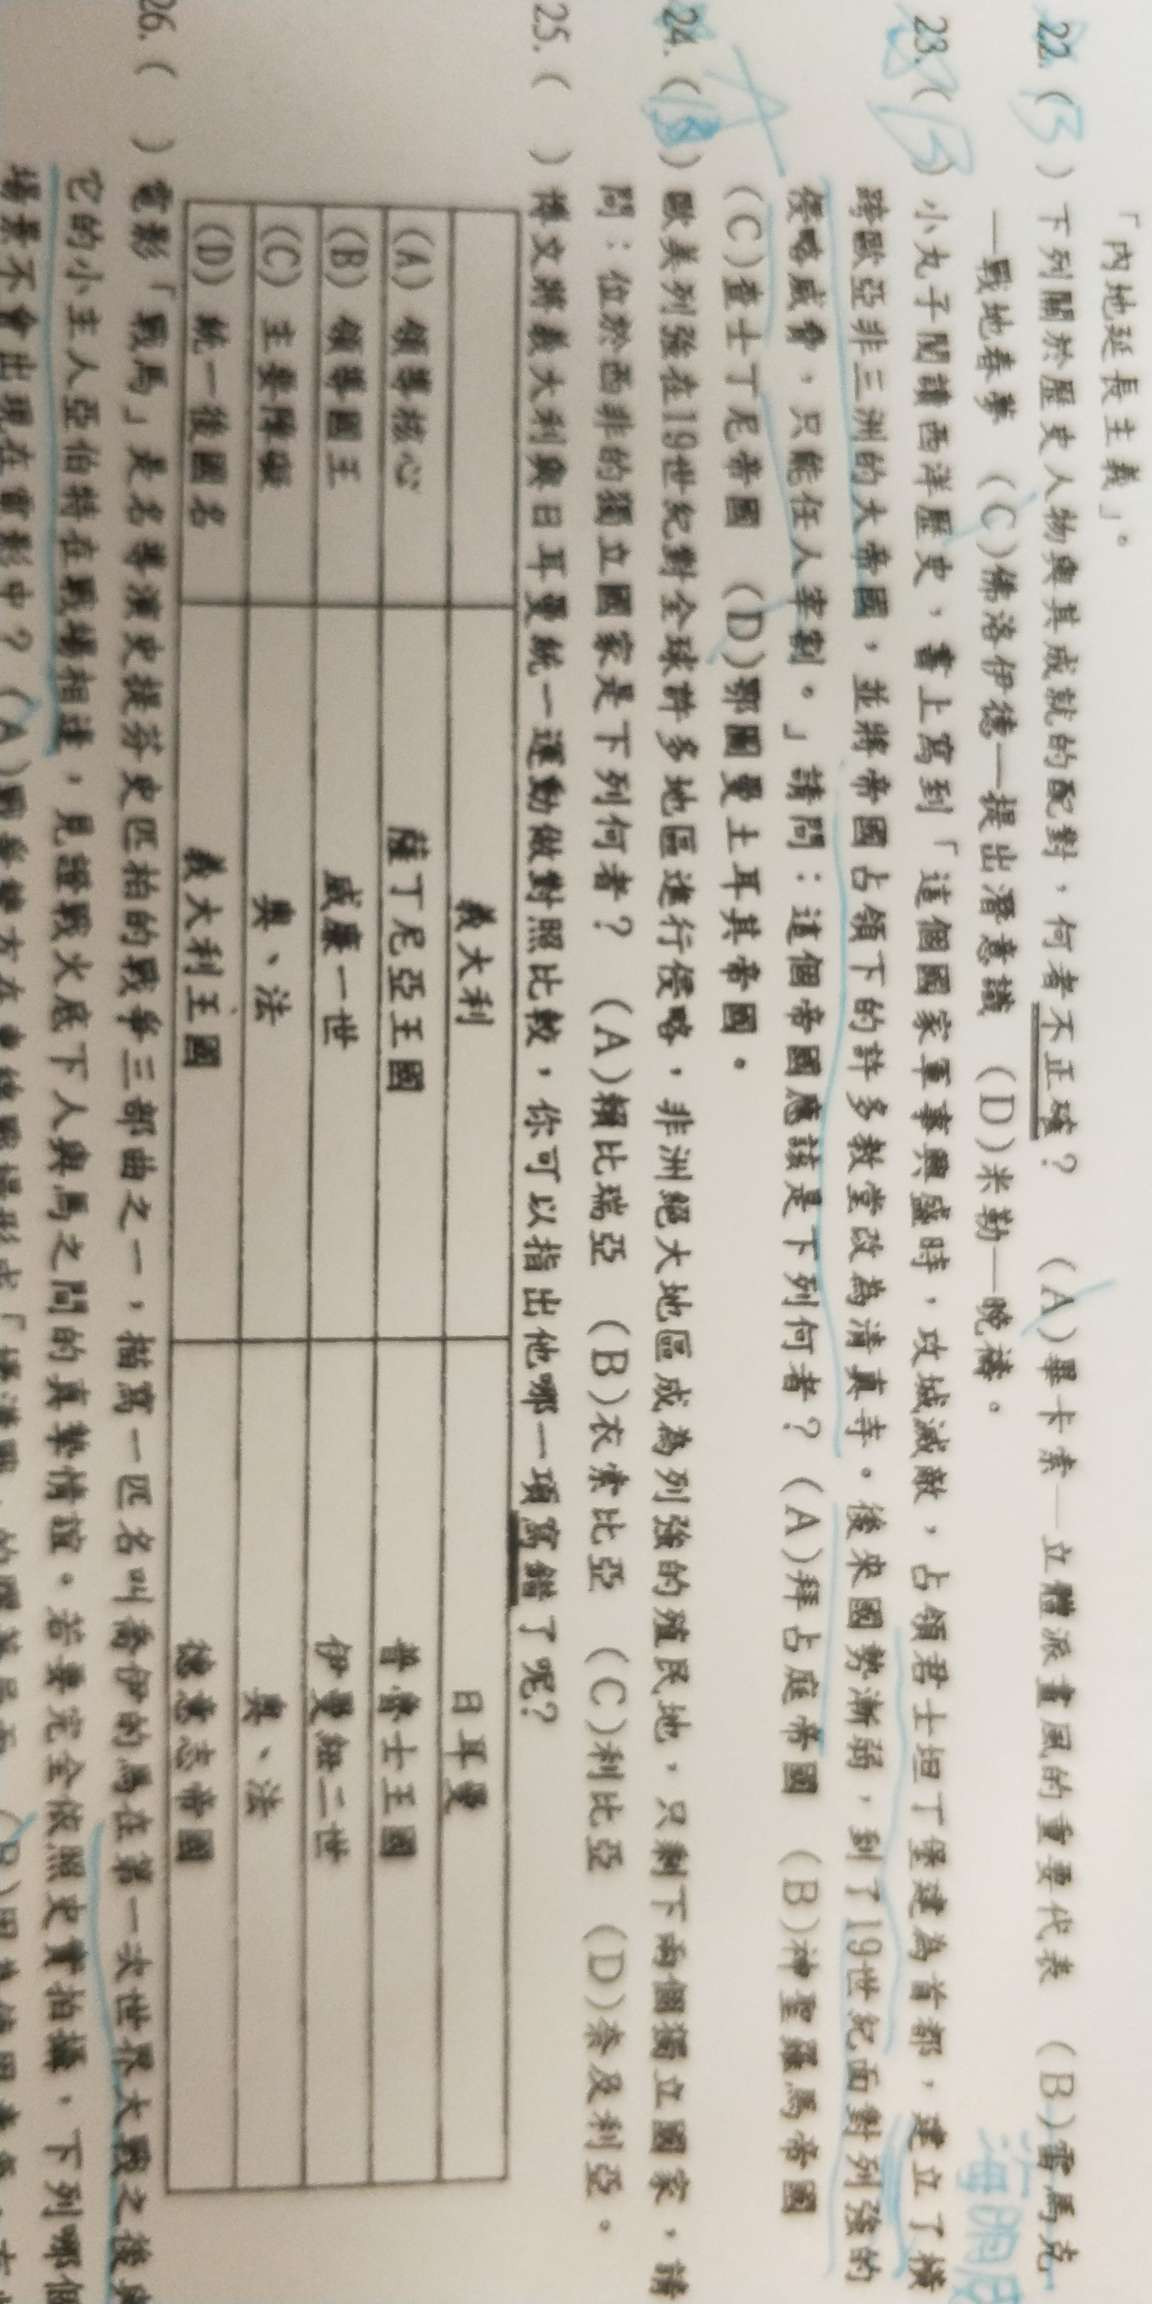 「內地延長主義」。
22.(B)下列關於歷史人物與其成就的配對，何者不正確？ (A)畢卡索—立體派畫風的重要代表 (B)雷馬克
—戰地春夢 (C)佛洛伊德—提出潛意識 (D)米勒—晚禱。
海明威
23.( )小丸子閱讀西洋歷史，書上寫到「這個國家軍事興盛時，攻城滅敵，占領君士坦丁堡建為首都，建立了橫
跨歐亞非三洲的大帝國，並將帝國占領下的許多教堂改為清真寺。後來國勢漸弱，到了19世紀面對列強的
侵略威脅，只能任人宰割。」請問：這個帝國應該是下列何者？(A)拜占庭帝國 (B)神聖羅馬帝國
(C)查士丁尼帝國 (D)鄂圖曼土耳其帝國。
24.( )歐美列強在19世紀對全球許多地區進行侵略，非洲絕大地區成為列強的殖民地，只剩下兩個獨立國家，請
A
問：位於西非的獨立國家是下列何者？ (A)賴比瑞亞 (B)衣索比亞 (C)利比亞 (D)奈及利亞。
25.( )博文將義大利與日耳曼統一運動做對照比較，你可以指出他哪一項寫錯了呢？
義大利 日耳曼
(A) 領導核心 薩丁尼亞王國 普魯士王國
(B) 領導國王 威廉一世 伊曼紐二世
(C) 主要障礙 奧、法 奧、法
(D) 統一後國名 義大利王國 德意志帝國
26.( )電影「戰馬」是名導演史提芬史匹柏的戰爭三部曲之一，描寫一匹名叫喬伊的馬在第一次世界大戰之後與
它的小主人亞伯特在戰場相逢，見證戰火底下人與馬之間的真摯情誼。若要完全依照史實拍攝，下列哪個
場景不會出現在電影中？(A)戰爭雙方在